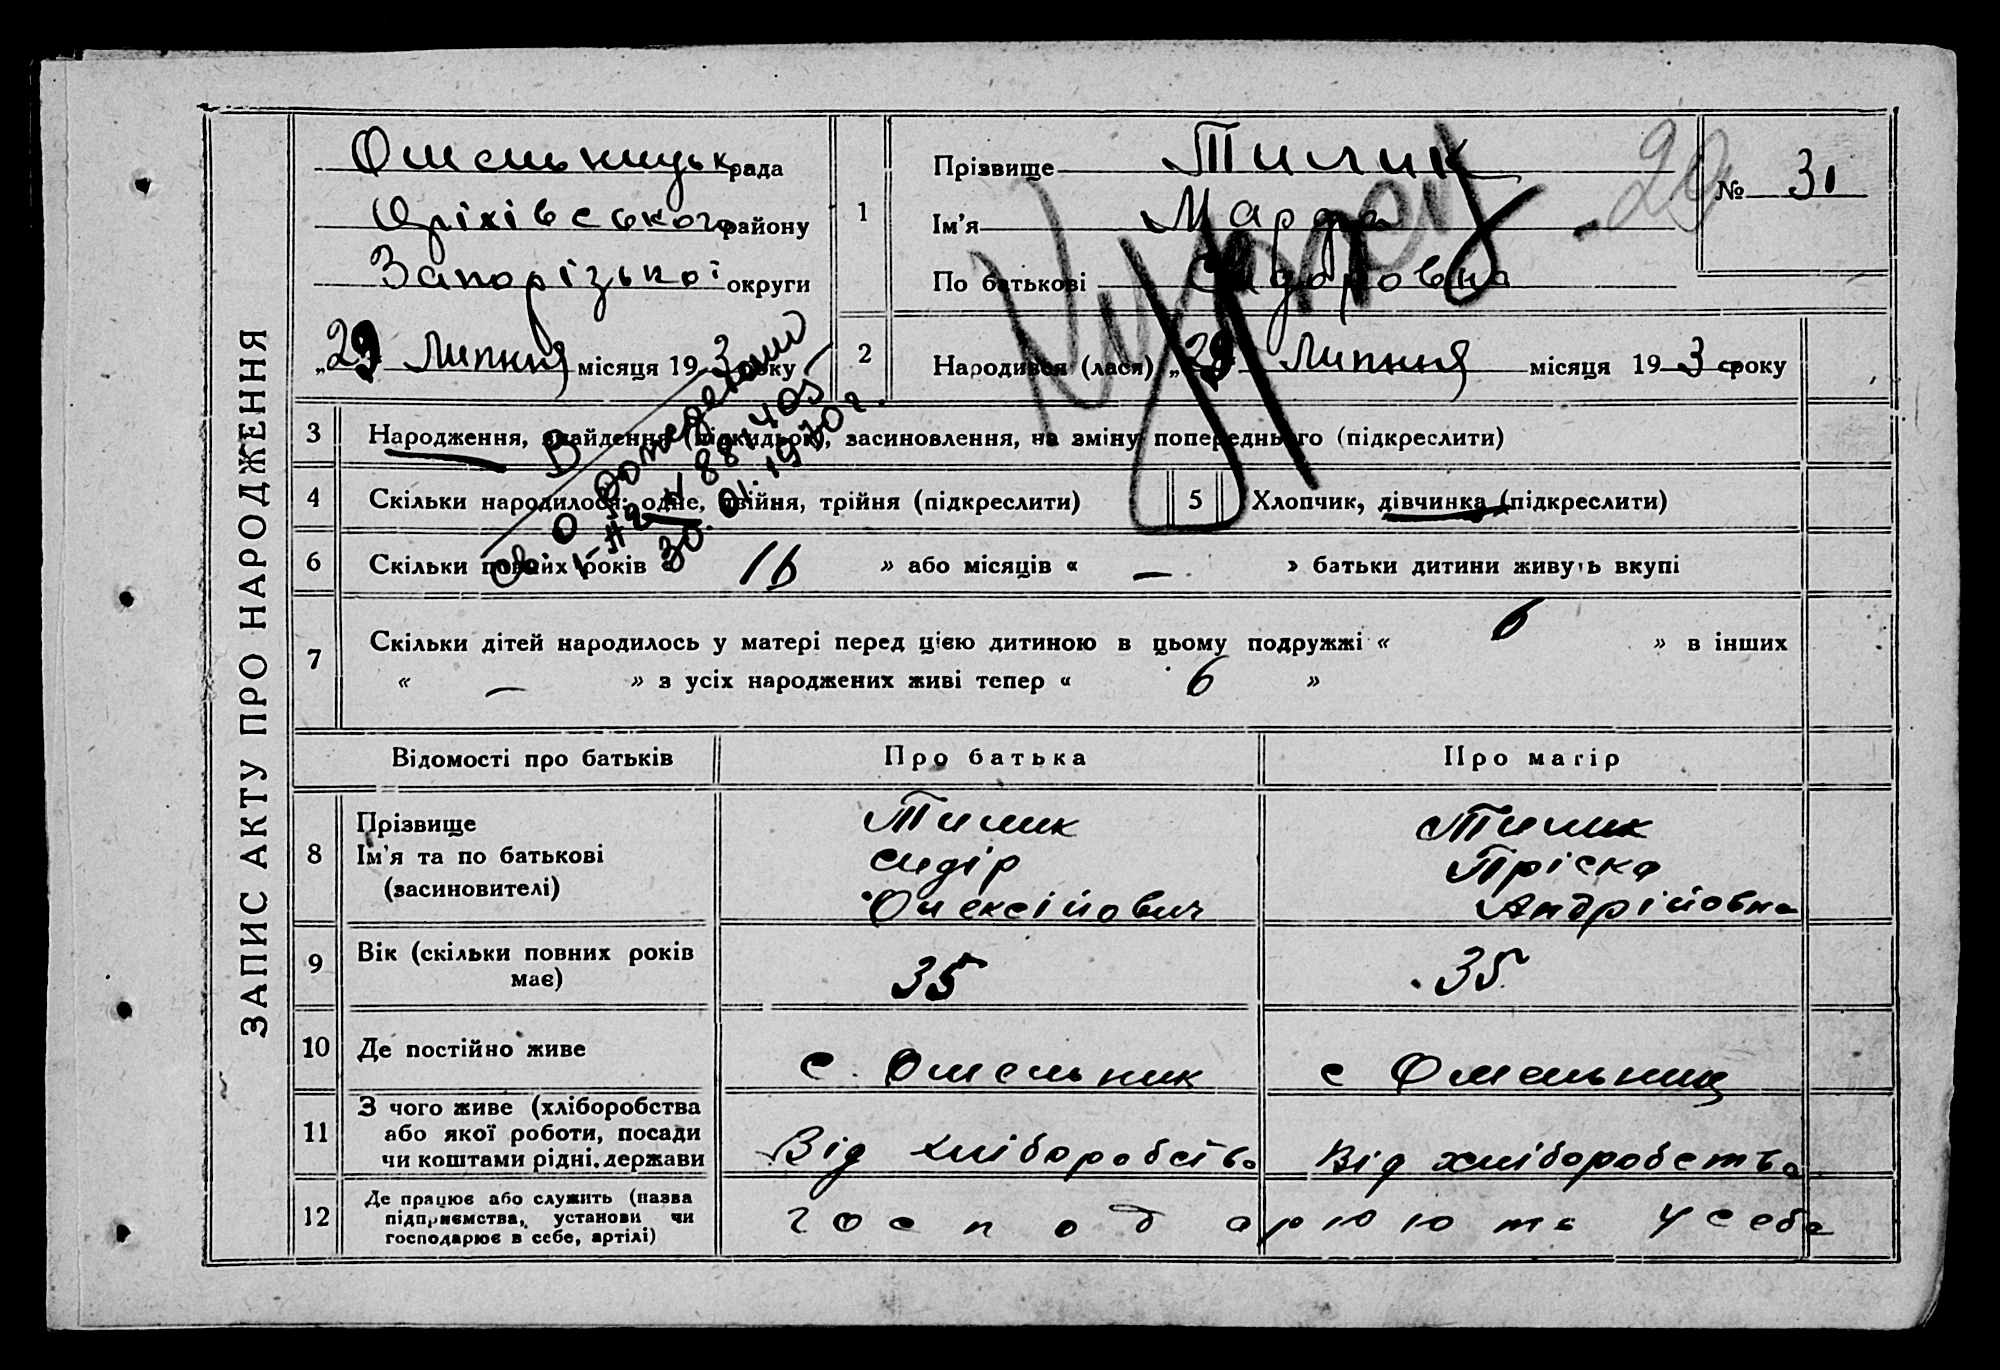 ЗАПИС АКТУ ПРО НАРОДЖЕННЯ
Омельницьк рада
Оріхівського району
Запорізької округи
„29 Липня місяця 19 3 року
1
Прізвище Тилик
Ім'я Марфа
По батькові Сидоровна
29
№ 31
2
Народився (лася) „29 Липня місяця 19 3 року
3 Народження, знайдення (підкидьок), засиновлення, на зміну попереднього (підкреслити)
4 Скільки народилося: одне, двійня, трійня (підкреслити)
5 Хлопчик, дівчинка (підкреслити)
6 Скільки повних років « 16 » або місяців « — » батьки дитини живуть вкупі
7 Скільки дітей народилось у матері перед цією дитиною в цьому подружжі « 6 » в інших
« — » з усіх народжених живі тепер « 6 »
В
св. о рождении
30.01.1970 г.
Відомості про батьків Про батька Про матір
8 Прізвище Тилик Тилик
Ім'я та по батькові Сидір Пріска
(засиновителі) Олексійович Андрійовна
9 Вік (скільки повних років має) 35 35
10 Де постійно живе с. Омельник с Омельник
11 З чого живе (хліборобства
або якої роботи, посади
чи коштами рідні, держави Від хліборобства Від хліборобства
12 Де працює або служить (назва
підприємства, установи чи
господарює в себе, артілі) господарюють у себе